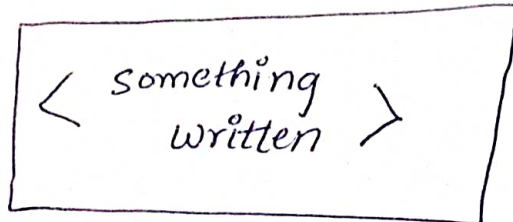 < something
written >